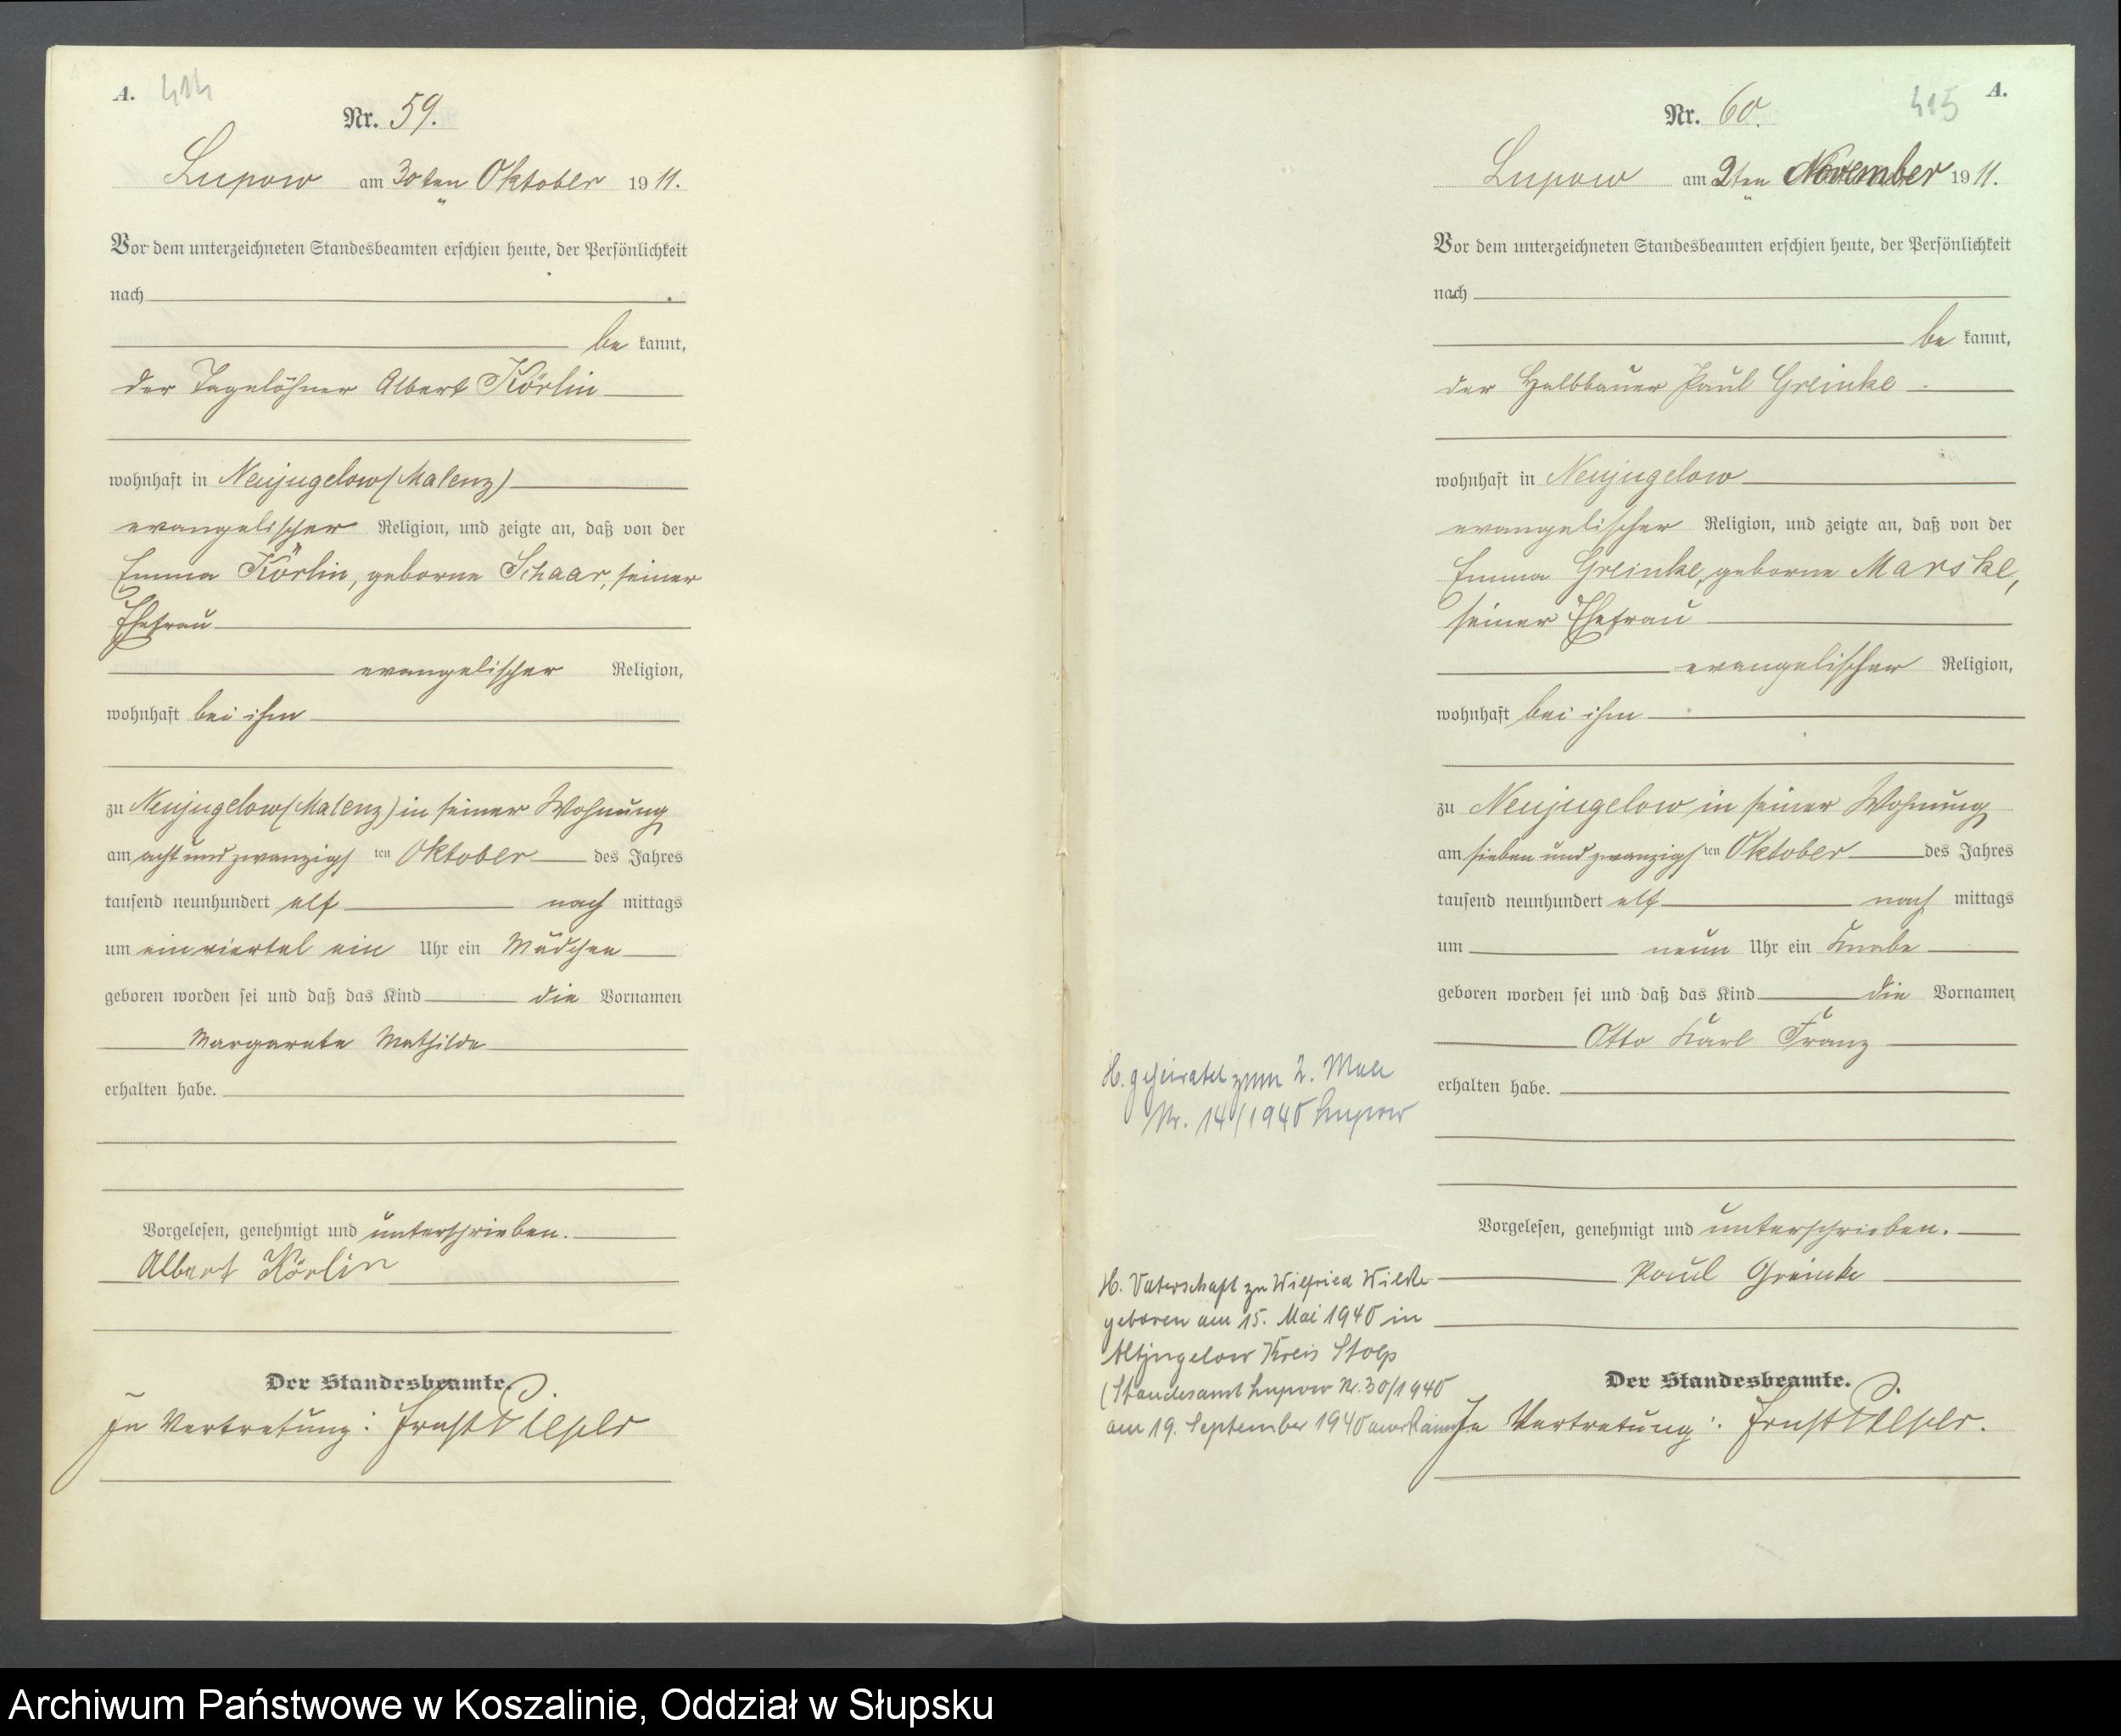 A. 414
Nr. 59.
Lupow am 30ten Oktober 1911.
Vor dem unterzeichneten Standesbeamten erschien heute, der Persönlichkeit
nach
be kannt,
der Tagelöhner Albert Körlin
wohnhaft in Neujugelow (Malenz)
evangelischer Religion, und zeigte an, daß von der
Emma Körlin, geborne Schaar, seiner
Ehefrau
evangelischer Religion,
wohnhaft bei ihm
zu Neujugelow (Malenz) in seiner Wohnung
am acht und zwanzigsten Oktober des Jahres
tausend neunhundert elf nach mittags
um ein viertel ein Uhr ein Mädchen
geboren worden sei und daß das Kind die Vornamen
Margarete Mathilde
erhalten habe.
Vorgelesen, genehmigt und unterschrieben.
Albert Körlin
Der Standesbeamte.
In Vertretung: Ernst
415 A.
Nr. 60.
Lupow am 2ten November 1911.
Vor dem unterzeichneten Standesbeamten erschien heute, der Persönlichkeit
nach
be kannt,
der Halbbauer Paul Greinke
wohnhaft in Neujugelow
evangelischer Religion, und zeigte an, daß von der
Emma Greinke, geborne Marske,
seiner Ehefrau
evangelischer Religion,
wohnhaft bei ihm
zu Neujugelow in seiner Wohnung
am sieben und zwanzigsten Oktober des Jahres
tausend neunhundert elf nach mittags
um neun Uhr ein Knabe
geboren worden sei und daß das Kind die Vornamen
Otto Karl Franz
erhalten habe.
Vorgelesen, genehmigt und unterschrieben.
Paul Greinke
Der Standesbeamte.
In Vertretung: Ernst
H. geheiratet zum 2. Male
Nr. 14/1940 Lupow
H. Vaterschaft zu Wilfried Wilke
geboren am 15. Mai 1940 in
Altjugelow Kreis Stolp
(Standesamt Lupow Nr. 30/1940
am 19. September 1940 anerkannt
Archiwum Państwowe w Koszalinie, Oddział w Słupsku